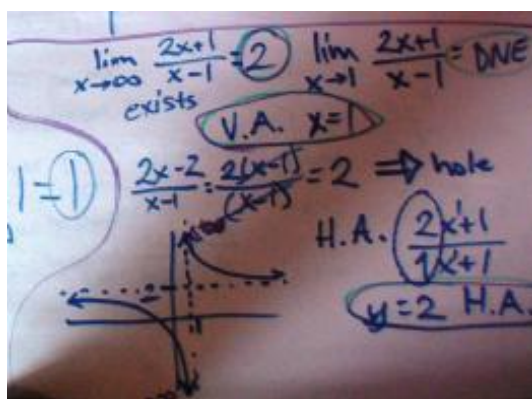 lim x→∞ (2x+1)/(x-1) = 2
exists
lim x→1 (2x+1)/(x-1) = DNE
V.A. x=1
1=1
(2x-2)/(x-1) = 2(x-1)/(x-1) = 2 ⇒ hole
H.A. (2x¹+1)/(1x¹+1)
y=2 H.A.
2
1